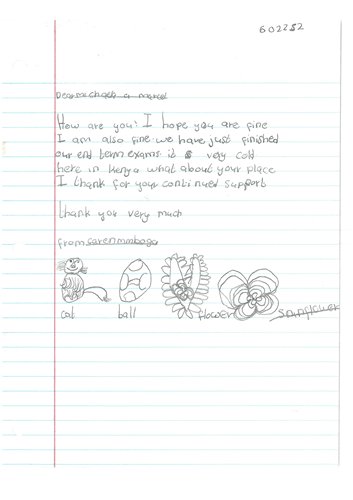 602252
How are you? I hope you are fine
I am also fine we have just finished
our end term exams it is very cold
here in kenya what about your place
I thank for your continued support
thank you very much
from
cat ball flower sunflower